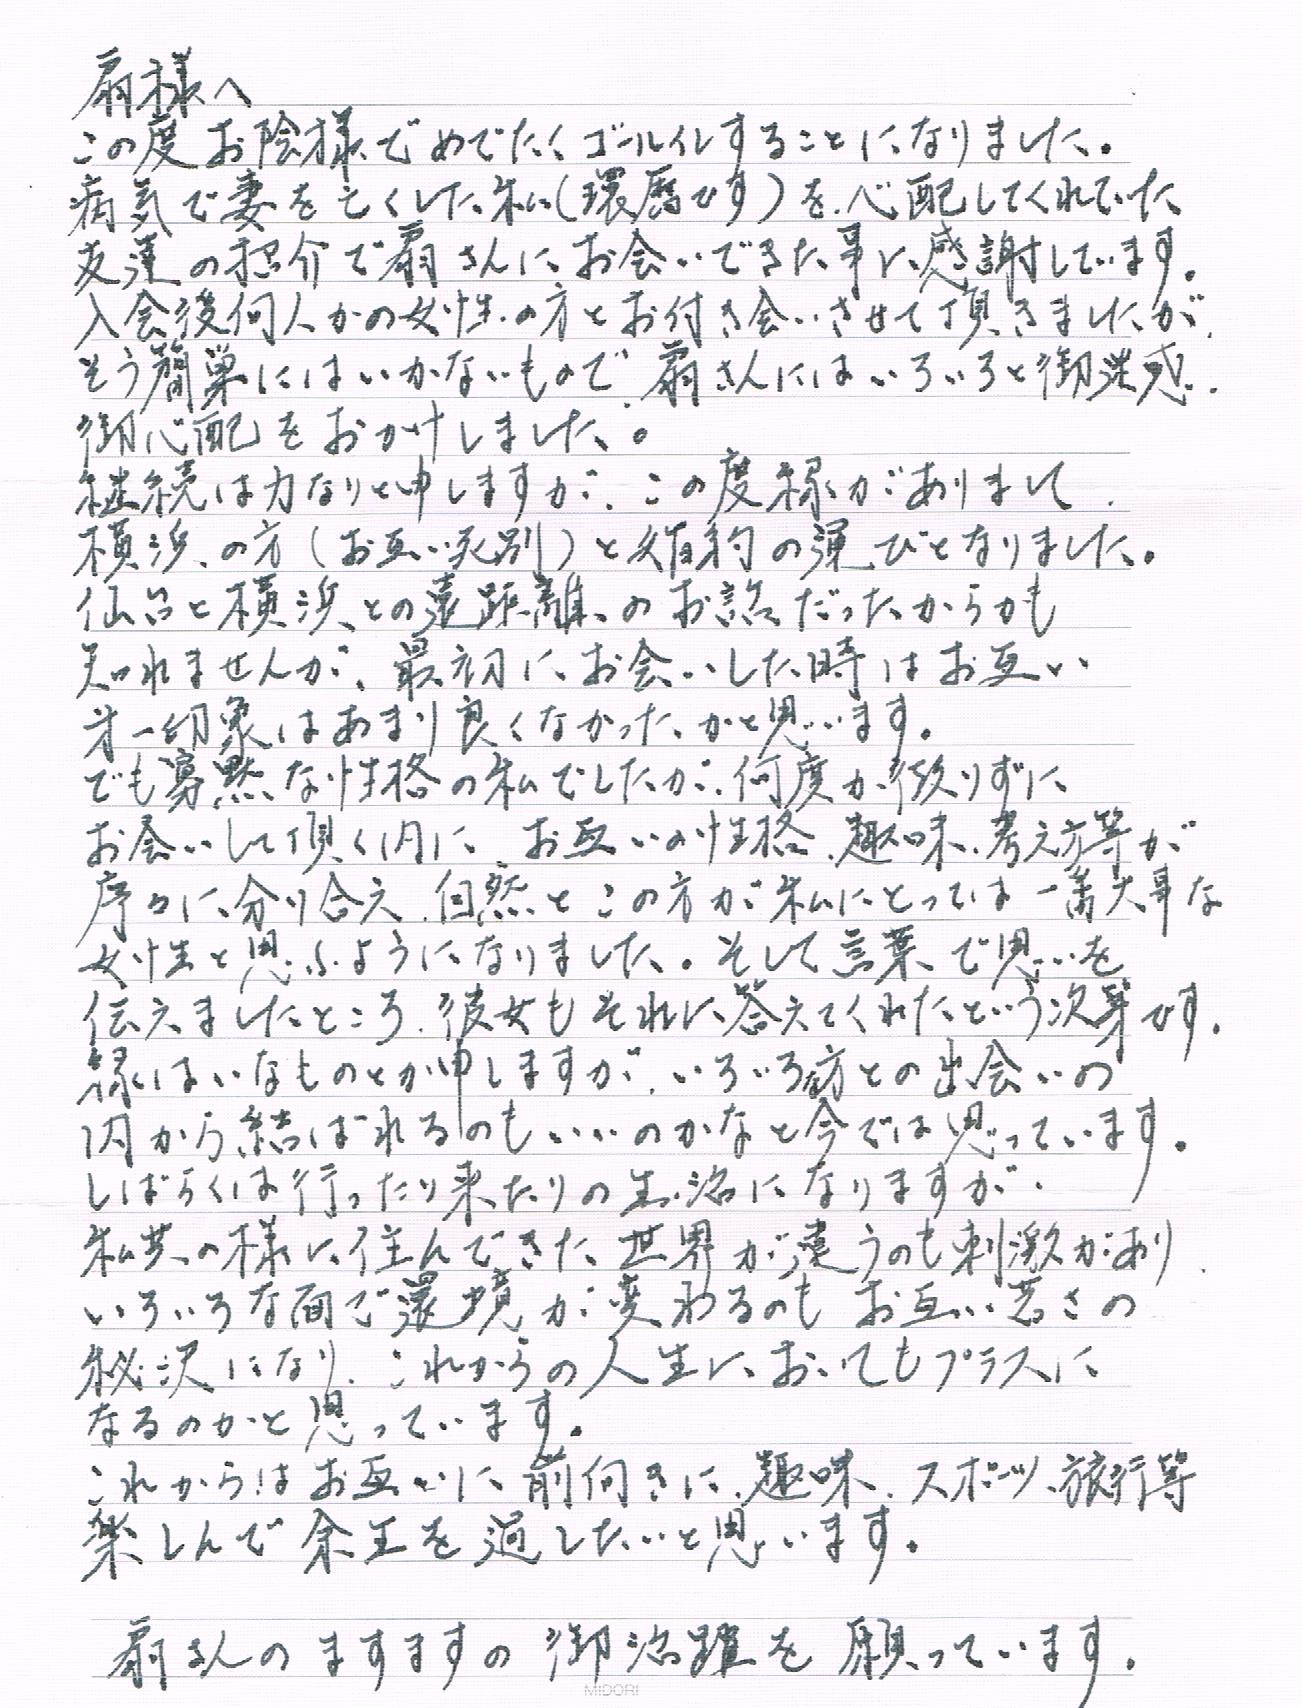 扇様へ
この度お陰様でめでたくゴールインすることになりました。
病気で妻を亡くした私(環暦です)を、心配してくれていた
友達の紹介で扇さんに、お会いできた事に、感謝しています。
入会後何人かの女性の方とお付き会いさせて頂きましたが、
そう簡単にはいかないもので、扇さんにはいろいろと御迷惑、
御心配をおかけしました。
継続は力なりと申しますが、この度縁がありまして、
横浜の方(お互い死別)と婚約の運びとなりました。
仙台と横浜との遠距離のお話だったからかも
知れませんが、最初にお会いした時はお互い
第一印象はあまり良くなかったかと思います。
でも寡黙な性格の私でしたが、何度か懲りずに
お会いして頂く内に、お互いの性格、趣味、考え方等が
序々に分り合え、自然とこの方が私にとっては一番大事な
女性と思ふようになりました。そして言葉で思いを
伝えましたところ、彼女もそれに答えてくれたという次第です。
縁はいなものとか申しますが、いろいろな方との出会いの
内から結ばれるのもいいのかなと今では思っています。
しばらくは行ったり来たりの生活になりますが、
私共の様に住んできた世界が違うのも刺激があり、
いろいろな面で環境が変わるのもお互い若さの
秘訣になり、これからの人生においてもプラスに
なるのかと思っています。
これからはお互いに前向きに、趣味、スポーツ、旅行等
楽しんで余生を過したいと思います。
扇さんのますますの御活躍を願っています。
MIDORI